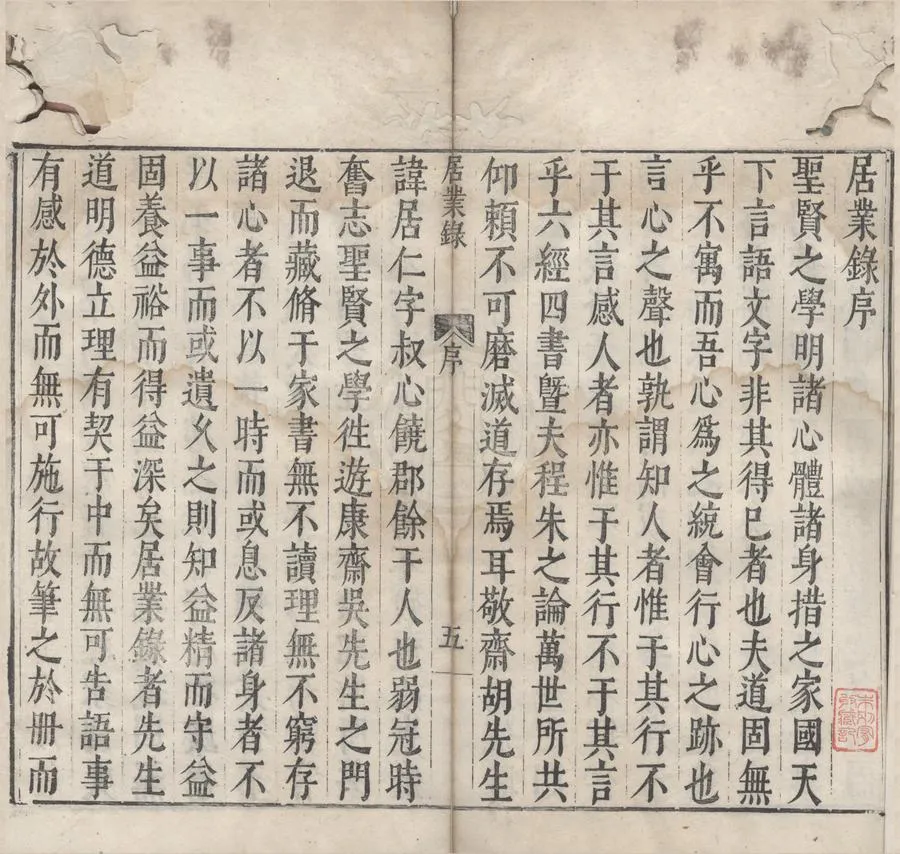 居業錄序
聖賢之學明諸心體諸身措之家國天
下言語文字非其得已者也夫道固無
乎不寓而吾心爲之統會行心之跡也
言心之聲也孰謂知人者惟于其行不
于其言感人者亦惟于其行不于其言
乎六經四書暨夫程朱之論萬世所共
仰賴不可磨滅道存焉耳敬齋胡先生
居業錄
序
五
諱居仁字叔心饒郡餘干人也弱冠時
奮志聖賢之學徃遊康齋吳先生之門
退而藏脩于家書無不讀理無不窮存
諸心者不以一時而或息反諸身者不
以一事而或遺乆之則知益精而守益
固養益裕而得益深矣居業錄者先生
道明德立理有契于中而無可告語事
有感於外而無可施行故筆之於冊而